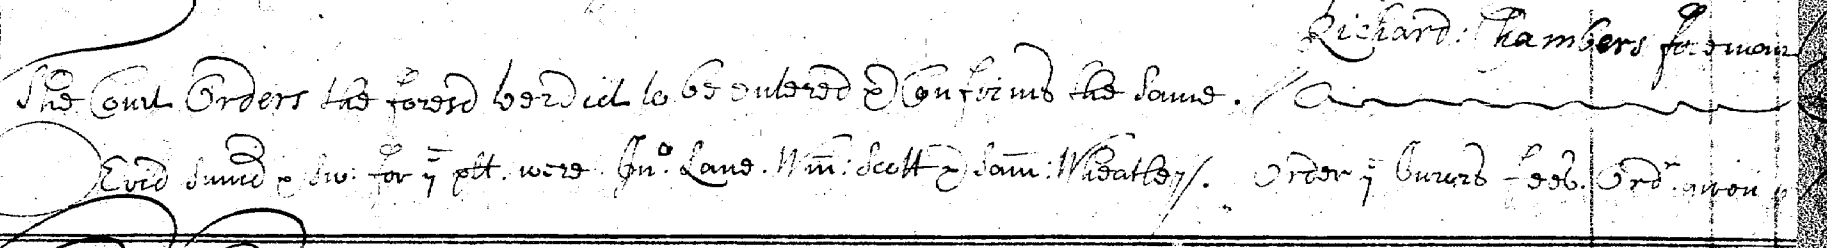 Richard: Chambers foreman
The Court Orders the foresd verdict to be entered & Confirms the same.
Evid sumd & sw: for ye plt. were Jno. Lane. Wm: Scott & Sam: Wheatley. Order ye fees. Ordr. given